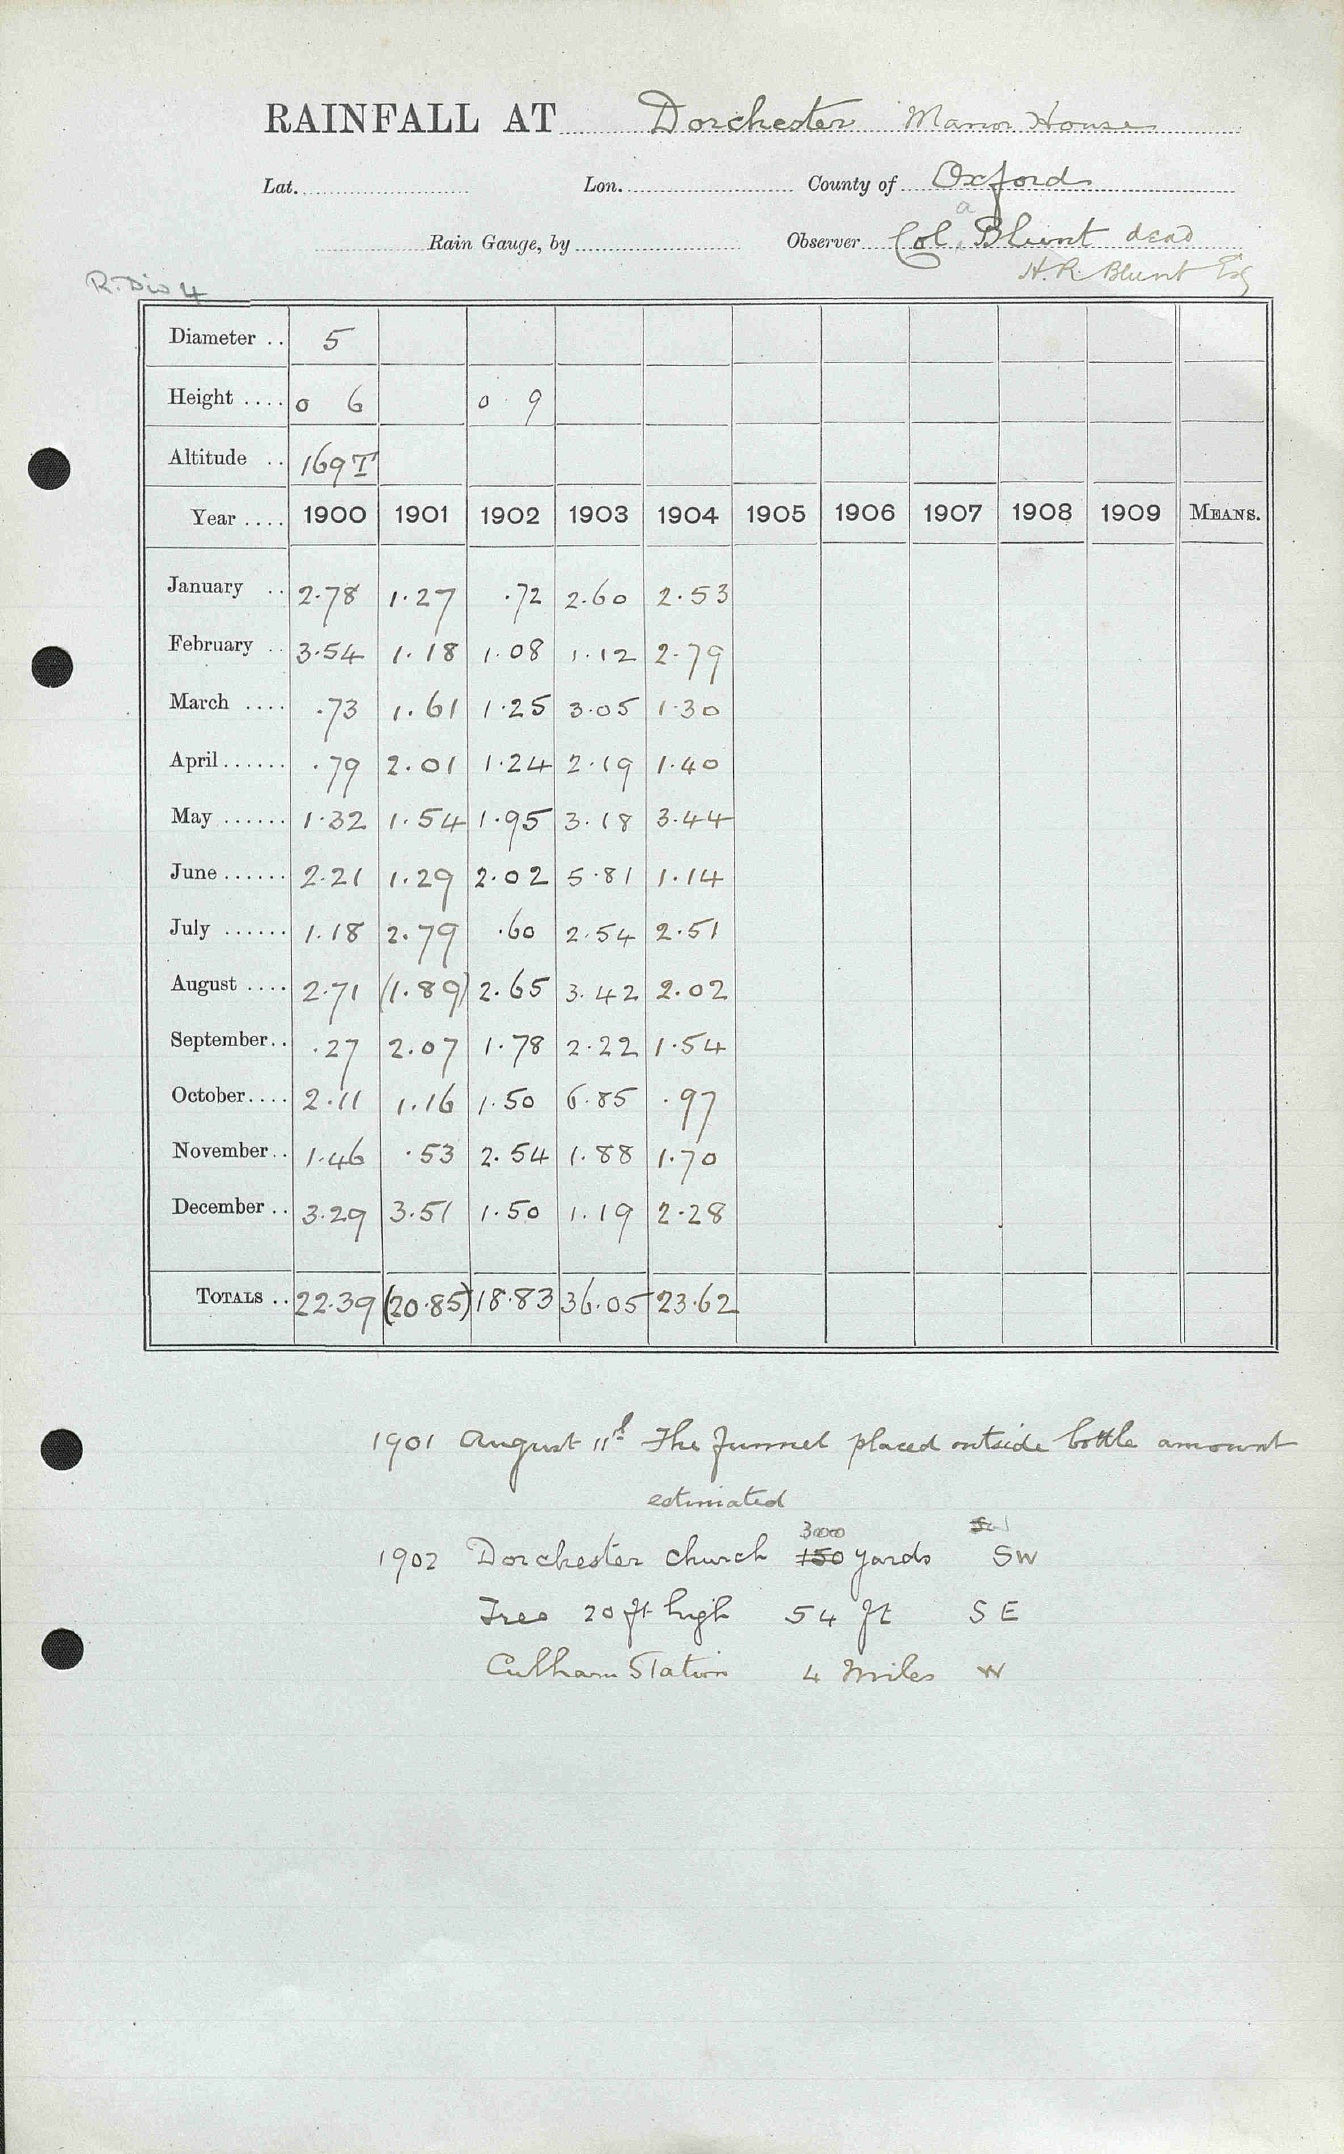 RAINFALL AT Dorchester Manor House
Lat. Lon. County of Oxford
a
Rain Gauge, by Observer Col. Blunt dead
H.R. Blunt Esq
R. Div 4
Diameter .. 5
Height .... 0 6 0 9
Altitude .. 169 T
Year .... 1900 1901 1902 1903 1904 1905 1906 1907 1908 1909 MEANS.
January .. 2.78 1.27 .72 2.60 2.53
February .. 3.54 1.18 1.08 1.12 2.79
March .... .73 1.61 1.25 3.05 1.30
April...... .79 2.01 1.24 2.19 1.40
May ...... 1.32 1.54 1.95 3.18 3.44
June...... 2.21 1.29 2.02 5.81 1.14
July ...... 1.18 2.79 .60 2.54 2.51
August .... 2.71 (1.89) 2.65 3.42 2.02
September.. .27 2.07 1.78 2.22 1.54
October.... 2.11 1.16 1.50 6.85 .97
November.. 1.46 .53 2.54 1.88 1.70
December .. 3.29 3.51 1.50 1.19 2.28
TOTALS .. 22.39 (20.85) 18.83 36.05 23.62
1901 August 11th The funnel placed outside bottle amount
estimated
300
1902 Dorchester church 150 yards SW
Tree 20 ft high 54 ft SE
Culham Station 4 Miles W